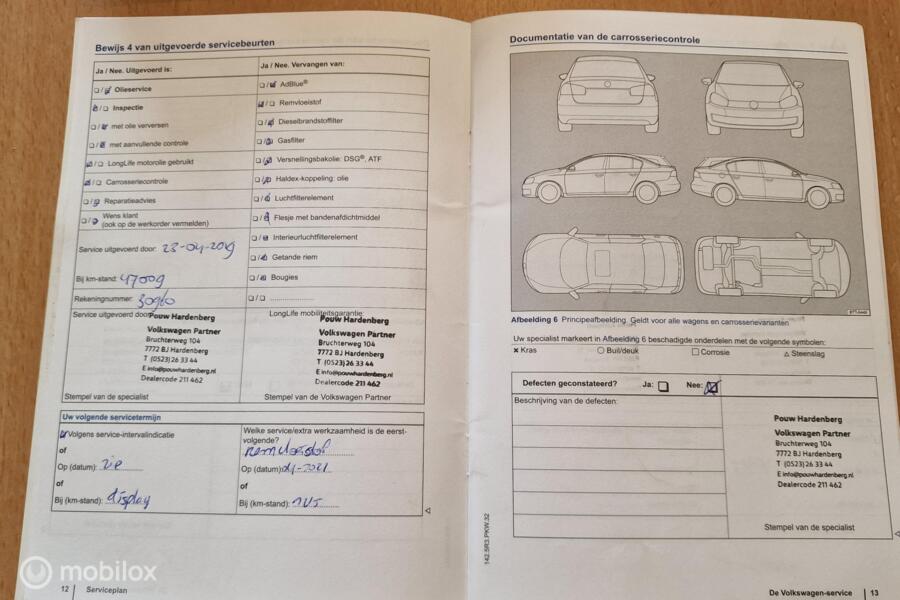 Bewijs 4 van uitgevoerde servicebeurten
Ja / Nee. Uitgevoerd is:
Olieservice
Inspectie
met olie verversen
met aanvullende controle
LongLife motorolie gebruikt
Carrosseriecontrole
Reparatieadvies
Wens klant
(ook op de werkorder vermelden)
Service uitgevoerd door: 23-04-2019
Bij km-stand: 47009
Rekeningnummer: 30960
Service uitgevoerd door:
Pouw Hardenberg
Volkswagen Partner
Bruchterweg 104
7772 BJ Hardenberg
T (0523) 26 33 44
E info@pouwhardenberg.nl
Dealercode 211 462
Stempel van de specialist
Ja / Nee. Vervangen van:
AdBlue®
Remvloeistof
Dieselbrandstoffilter
Gasfilter
Versnellingsbakolie: DSG®, ATF
Haldex-koppeling: olie
Luchtfilterelement
Flesje met bandenafdichtmiddel
Interieurluchtfilterelement
Getande riem
Bougies
LongLife mobiliteitsgarantie:
Pouw Hardenberg
Volkswagen Partner
Bruchterweg 104
7772 BJ Hardenberg
T (0523) 26 33 44
E info@pouwhardenberg.nl
Dealercode 211 462
Stempel van de Volkswagen Partner
Uw volgende servicetermijn
Volgens service-intervalindicatie
of
Op (datum): zie
of
Bij (km-stand): display
Welke service/extra werkzaamheid is de eerst-
volgende?
remvloeistof
Op (datum):
of
Bij (km-stand):
12 Serviceplan
Documentatie van de carrosseriecontrole
Afbeelding 6 Principeafbeelding. Geldt voor alle wagens en carrosserievarianten
Uw specialist markeert in Afbeelding 6 beschadigde onderdelen met de volgende symbolen:
Kras
Buil/deuk
Corrosie
Steenslag
Defecten geconstateerd? Ja: Nee:
Beschrijving van de defecten:
Pouw Hardenberg
Volkswagen Partner
Bruchterweg 104
7772 BJ Hardenberg
T (0523) 26 33 44
E info@pouwhardenberg.nl
Dealercode 211 462
Stempel van de specialist
142.5R3.PKW.32
De Volkswagen-service 13
mobilox